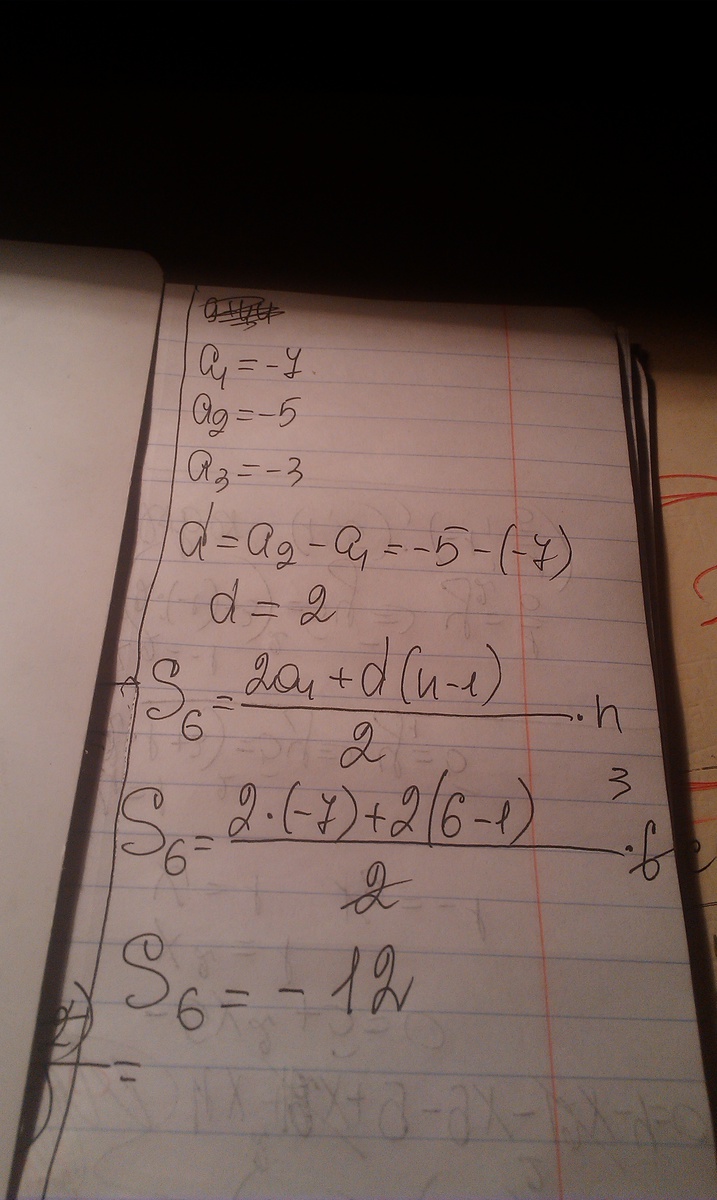 a₁ = -7
a₂ = -5
a₃ = -3
d = a₂ - a₁ = -5 - (-7)
d = 2
S₆ = (2a₁ + d(n-1))/2 · n
3
S₆ = (2·(-7) + 2(6-1))/2 · 6
S₆ = -12
2)
=